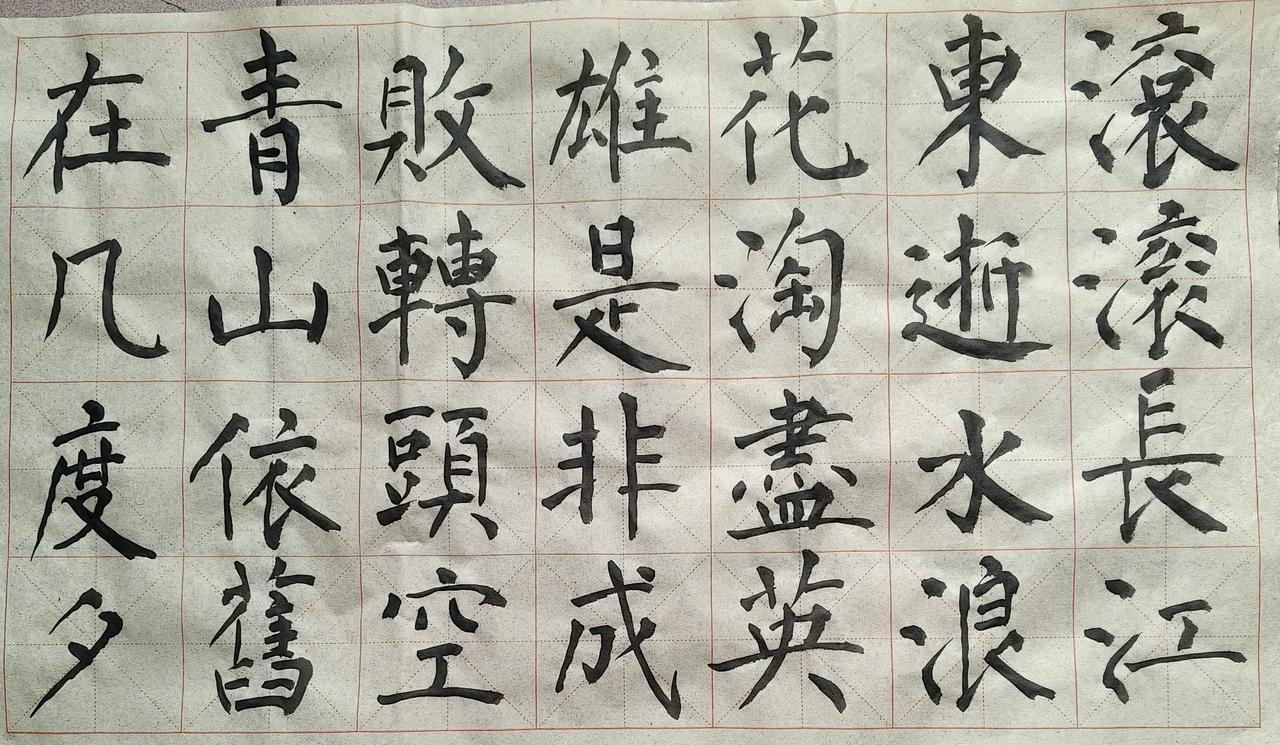 滾滾長江
東逝水浪
花淘盡英
雄是非成
敗轉頭空
青山依舊
在几度夕